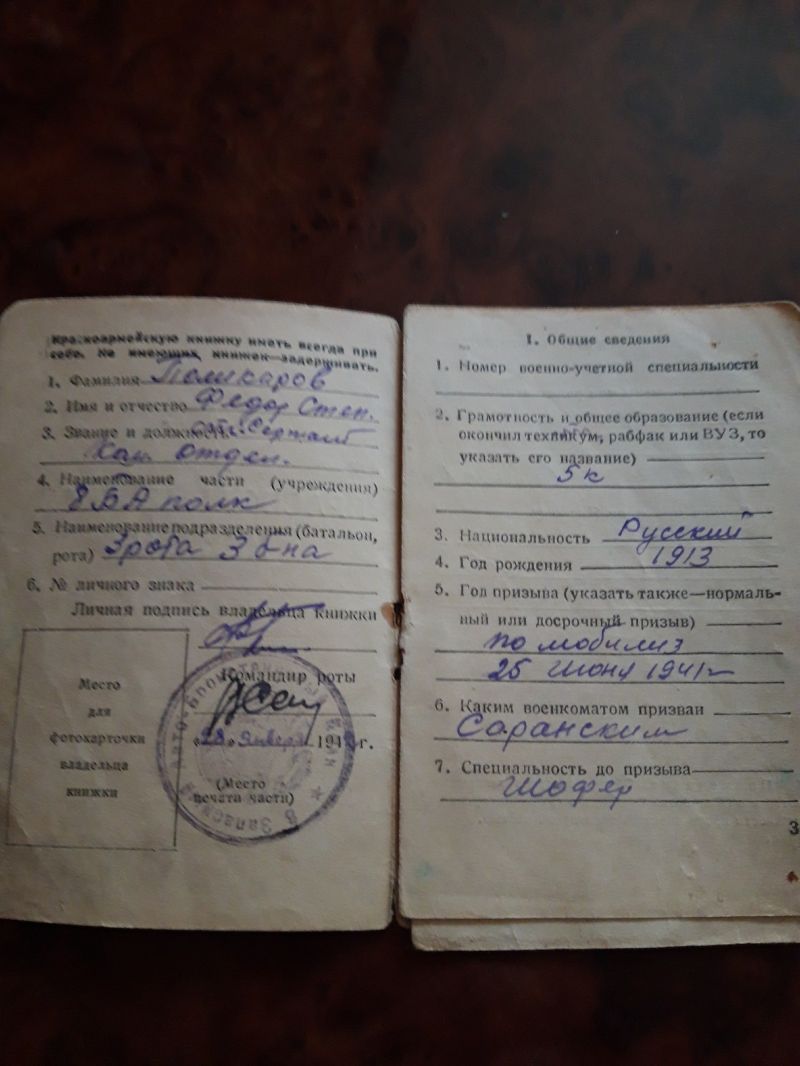 Красноармейскую книжку иметь всегда при
себе. Не имеющих книжек—задерживать.
1. Фамилия Поликаров
2. Имя и отчество Федор Степ.
3. Звание и должность Сержант
Ком отдел.
4. Наименование части (учреждения)
полк
5. Наименование подразделения (батальон,
рота) 3 рота 3 б-на
6. № личного знака
Личная подпись владельца книжки
Командир роты
Место
для
фотокарточки
владельца
книжки
«28» Января 194 г.
(Место
печати части)
I. Общие сведения
1. Номер военно-учетной специальности
2. Грамотность и общее образование (если
окончил техникум, рабфак или ВУЗ, то
указать его название)
5 к
3. Национальность Русский
4. Год рождения 1913
5. Год призыва (указать также—нормаль-
ный или досрочный призыв)
по мобилиз
25 Июня 1941 г
6. Каким военкоматом призван
Саранским
7. Специальность до призыва
Шофер
3